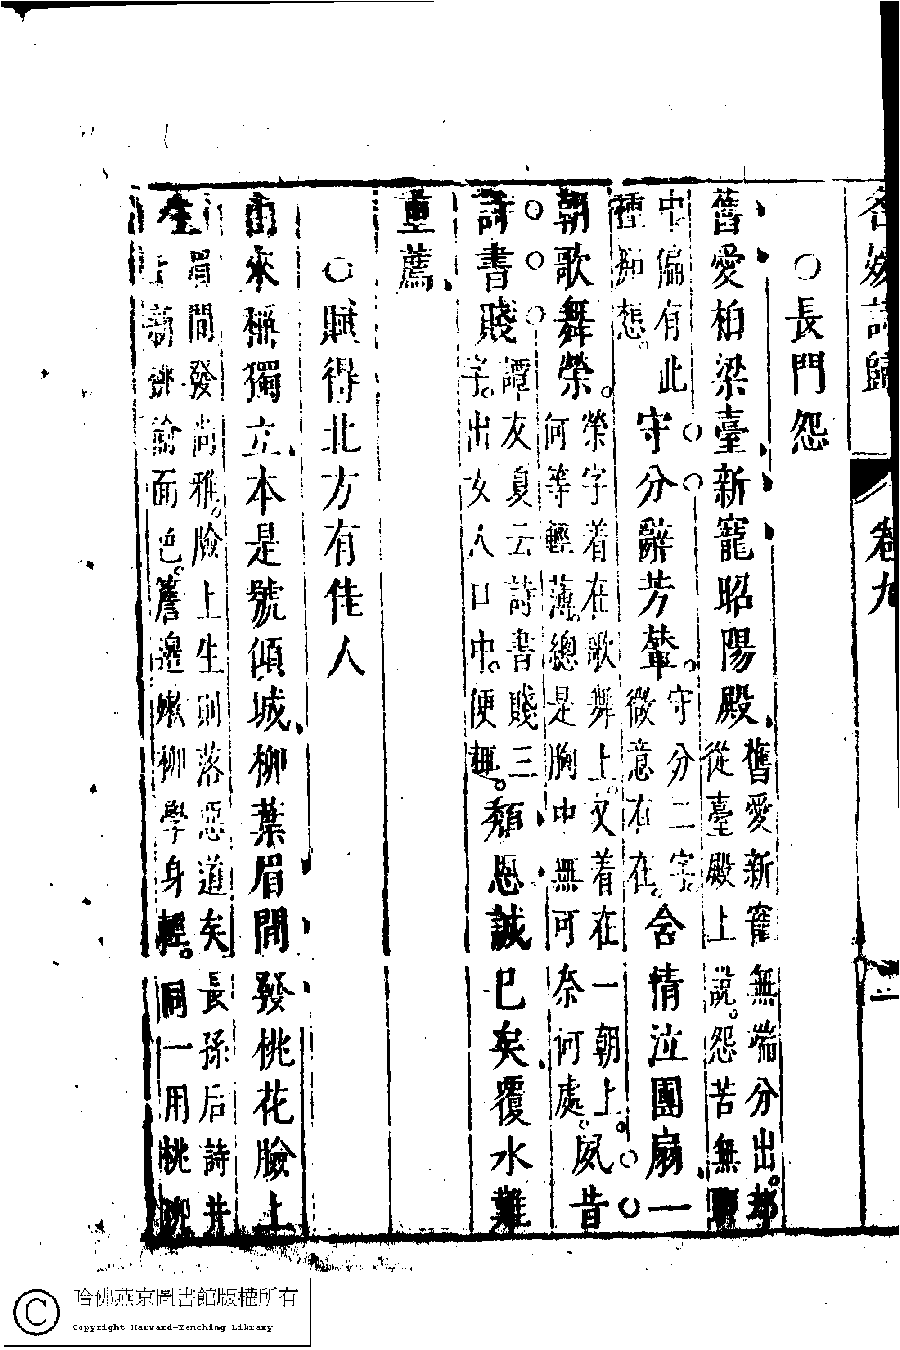 名媛詩歸 卷九
○長門怨
舊愛柏梁臺新寵昭陽殿 舊愛新寵無端分出却
從臺殿上說怨苦無
中偏有此
種想 守分辭芳輦 守分二字
微意有在 含情泣團扇一
朝歌舞榮 榮字着在歌舞上又着在一朝上
何等輕薄總是胸中無可奈何處 夙昔
詩書賤 譚友夏云詩書賤三
字出女人口中便趣 頹恩誠已矣覆水難
重薦
○賦得北方有佳人
由來稱獨立本是號傾城柳葉眉間發桃花臉上
生 眉間發尚雅臉上生則落惡道矣長孫后詩井
上新桃偷面色簷邊嫩柳學身輕同一用桃柳
哈佛燕京圖書館版權所有
Copyright Harvard-Yenching Library